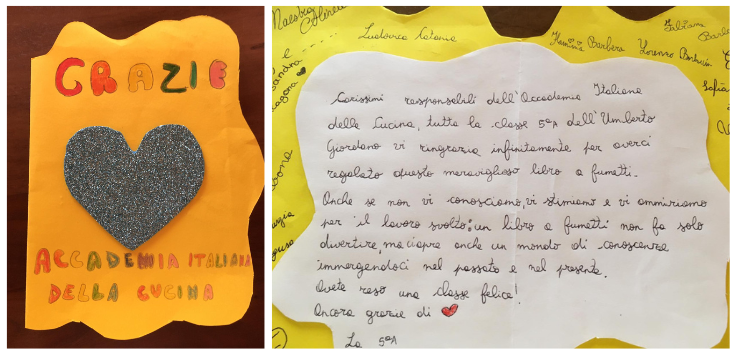 GRAZIE
ACCADEMIA ITALIANA
DELLA CUCINA
Maestra
Ludovica Catania
Barbera
Lorenzo
Fabiana
Sofia
Carissimi responsabili dell'Accademia Italiana
della Cucina, tutta la classe 5ªA dell'Umberto
Giordano vi ringrazia infinitamente per averci
regalato questo meraviglioso libro a fumetti.
Anche se non vi conosciamo, vi stimiamo e vi ammiriamo
per il lavoro svolto: un libro a fumetti non fa solo
divertire, ma ci apre anche un mondo di conoscenze
immergendoci nel passato e nel presente.
Avete reso una classe felice!
Ancora grazie di
La 5ªA